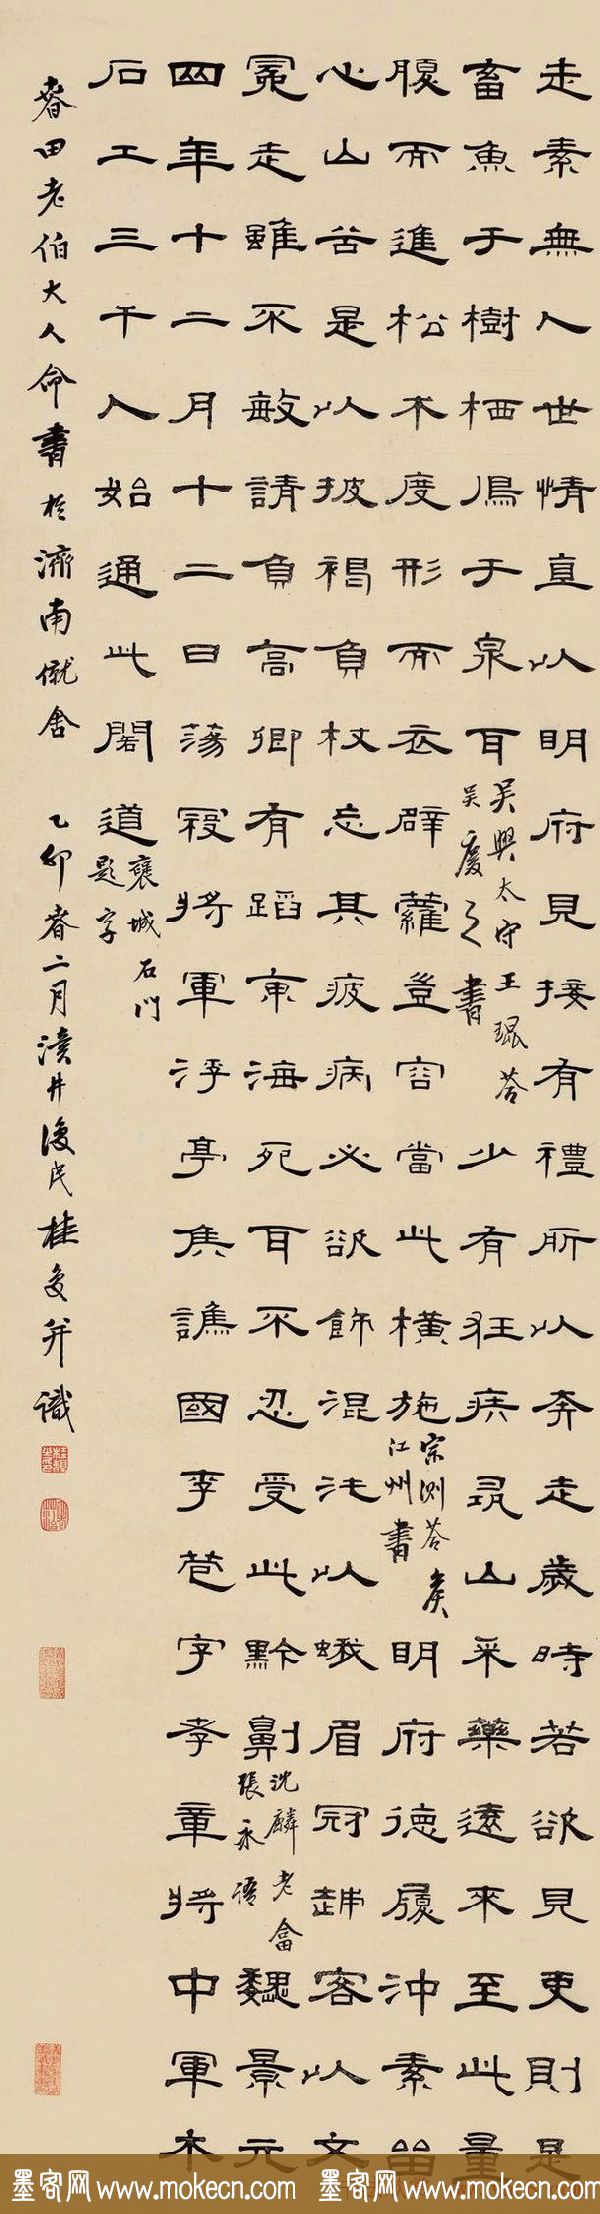 走素無人世情直以明府見接有禮所以奔走歲時若欲見吏則是
畜魚于樹栖鳥于泉耳
吳興太守王琨荅
吳慶之書
少有狂疾尋山采藥遠來至此量
腹而進松朮度形而衣薜蘿豈容當此橫施
宗測荅矦
江州書
明府德履沖素留
心山谷是以披褐負杖忘其疲病必欲飾混沌以蛾眉冠越客以文
冕走雖不敏請負高卿有蹈東海死耳不忍受此黔劓
沈麟老畣
張永語
魏景元
四年十二月十二日蕩寇將軍浮亭侯譙國李苞字孝章將中軍木
石工三千人始通此閣道
褒城石門
題字
春田老伯大人命書於濟南僦舍 乙卯春二月瀆井復民桂馥并識
墨客网 www.mokecn.com 墨客网 www.mokecn.com